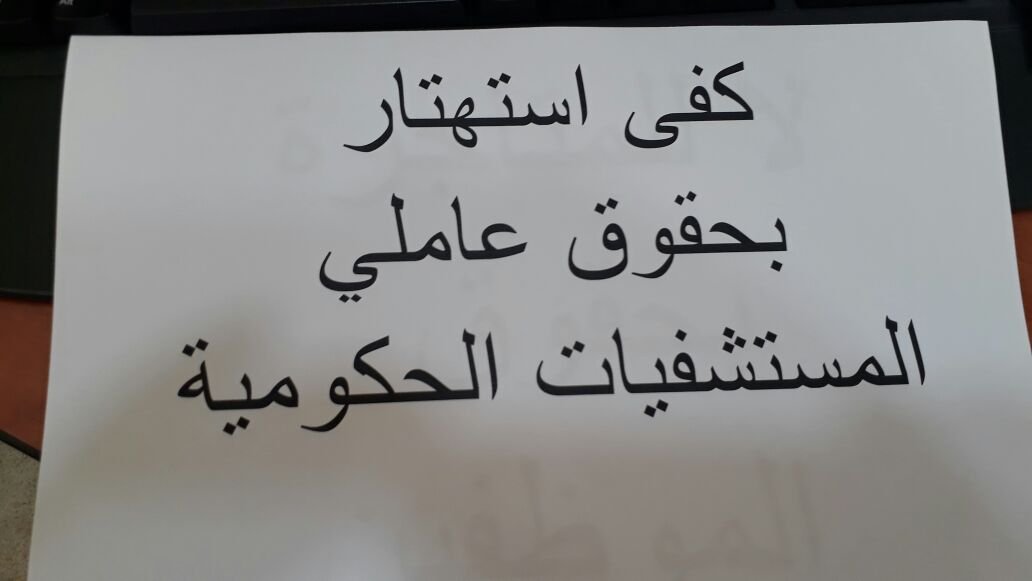 كفى استهتار
بحقوق عاملي
المستشفيات الحكومية